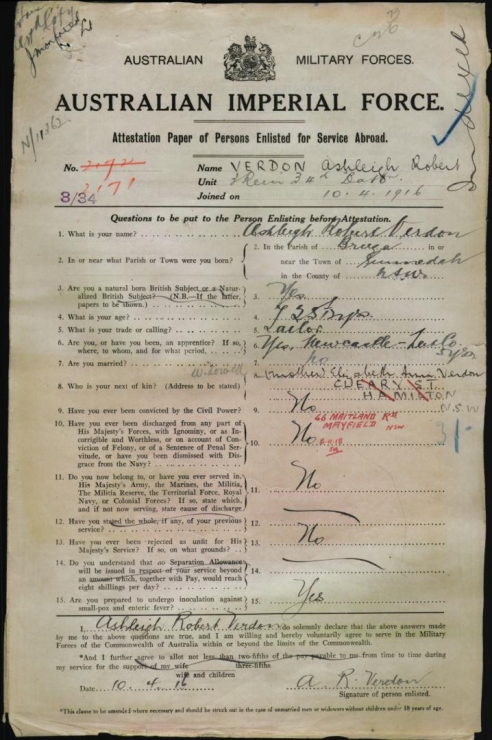 AUSTRALIAN MILITARY FORCES.
AUSTRALIAN IMPERIAL FORCE.
Attestation Paper of Persons Enlisted for Service Abroad.
No. 2171 Name VERDON Ashleigh Robert
3/34 Unit 34th
Joined on 10.4.1916
Questions to be put to the Person Enlisting before Attestation.
1. What is your name? Ashleigh Robert Verdon
2. In or near what Parish or Town were you born? 2. In the Parish of in or
near the Town of Gunnedah
in the County of NSW
3. Are you a natural born British Subject or a Natu-
ralized British Subject? (N.B.—If the latter,
papers to be shown.) 3. Yes
4. What is your age? 4. 25
5. What is your trade or calling? 5.
6. Are you, or have you been, an apprentice? If so,
where, to whom, and for what period? 6. Yes, Newcastle 5 yrs
7. Are you married? 7. No
8. Who is your next of kin? (Address to be stated) 8. (mother) Elizabeth Ann Verdon
CLEARY ST
HAMILTON
N.S.W
66 MAITLAND RD
MAYFIELD NSW
9. Have you ever been convicted by the Civil Power? 9. No
10. Have you ever been discharged from any part of
His Majesty's Forces, with Ignominy, or as In-
corrigible and Worthless, or on account of
Conviction of Felony, or of a Sentence of Penal Ser-
vitude, or have you been dismissed with Dis-
grace from the Navy? 10. No
3/-
11. Do you now belong to, or have you ever served in,
His Majesty's Army, the Marines, the Militia,
The Militia Reserve, the Territorial Force, Royal
Navy, or Colonial Forces? If so, state which,
and if not now serving, state cause of discharge 11. No
12. Have you stated the whole, if any, of your previous
service? 12.
13. Have you ever been rejected as unfit for His
Majesty's Service? If so, on what grounds? 13. No
14. Do you understand that no Separation Allowance
will be issued in respect of your service beyond
an amount which, together with Pay, would reach
eight shillings per day? 14.
15. Are you prepared to undergo inoculation against
small-pox and enteric fever? 15. Yes
I, Ashleigh Robert Verdon do solemnly declare that the above answers made
by me to the above questions are true, and I am willing and hereby voluntarily agree to serve in the Military
Forces of the Commonwealth of Australia within or beyond the limits of the Commonwealth.
*And I further agree to allot not less than two-fifths of the pay payable to me from time to time during
three-fifths
my service for the support of my wife
wife and children
Date 10.4.16 A. R. Verdon
Signature of person enlisted.
*This clause to be amended where necessary and should be struck out in the case of unmarried men or widowers without children under 18 years of age.